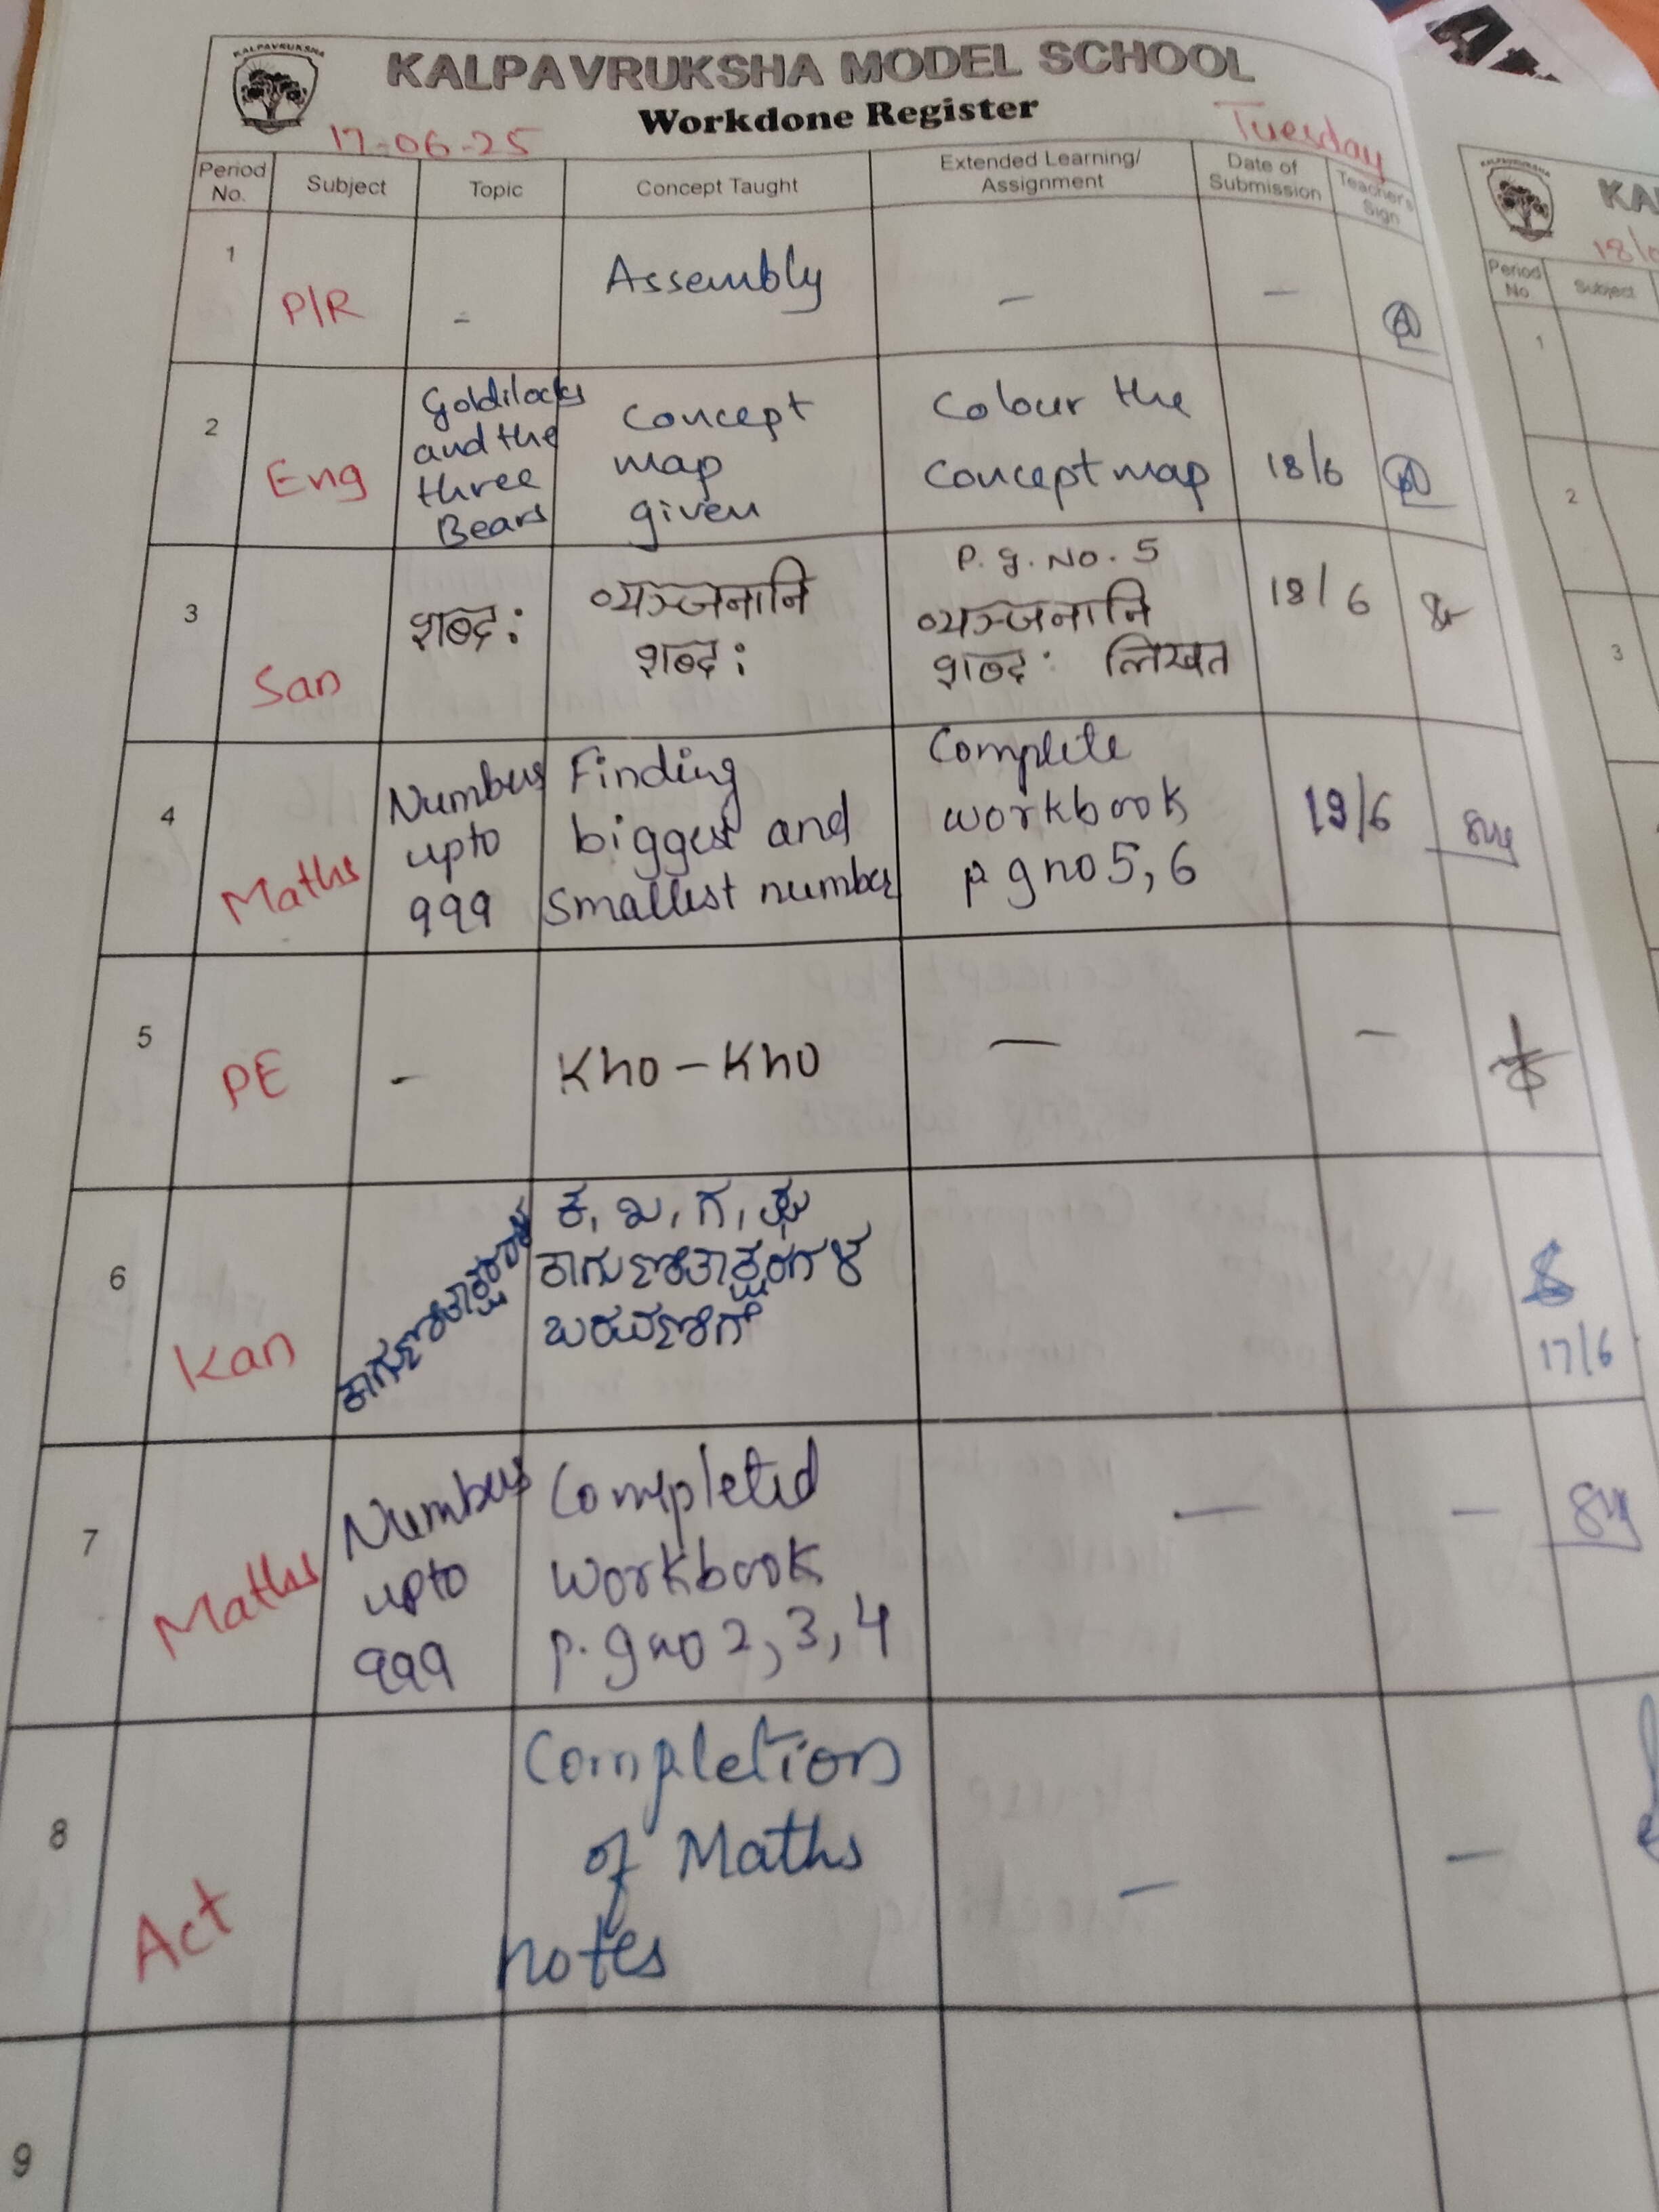 KALPAVRUKSHA
KALPAVRUKSHA MODEL SCHOOL
Workdone Register
17-06-25
Tuesday
Period No. Subject Topic Concept Taught Extended Learning/ Assignment Date of Submission Teacher's Sign
1 P/R - Assembly - -
2 Eng
Goldilocks and the three Bears
Concept map given
Colour the Concept map
18/6
3 San
शब्द:
व्यञ्जनानि
शब्द:
P.g.No.5
व्यञ्जनानि
शब्द: लिखत
18/6
4 Maths
Numbers upto 999
Finding
biggest and
smallest number
Complete
workbook
p.g no 5, 6
19/6
5 PE - Kho-Kho - -
6 Kan
ಕಾಗುಣಿತಾಕ್ಷರಗಳ
ಕ, ಖ, ಗ, ಘ
ಕಾಗುಣಿತಾಕ್ಷರಗಳ
ಬರವಣಿಗೆ
17/6
7 Maths
Numbers upto 999
Completed
workbook
p.g no 2, 3, 4
- -
8 Act
Completion
of Maths
notes
- -
9
KALPAVRUKSHA
KA
18/0
Period No Subject
1
2
3